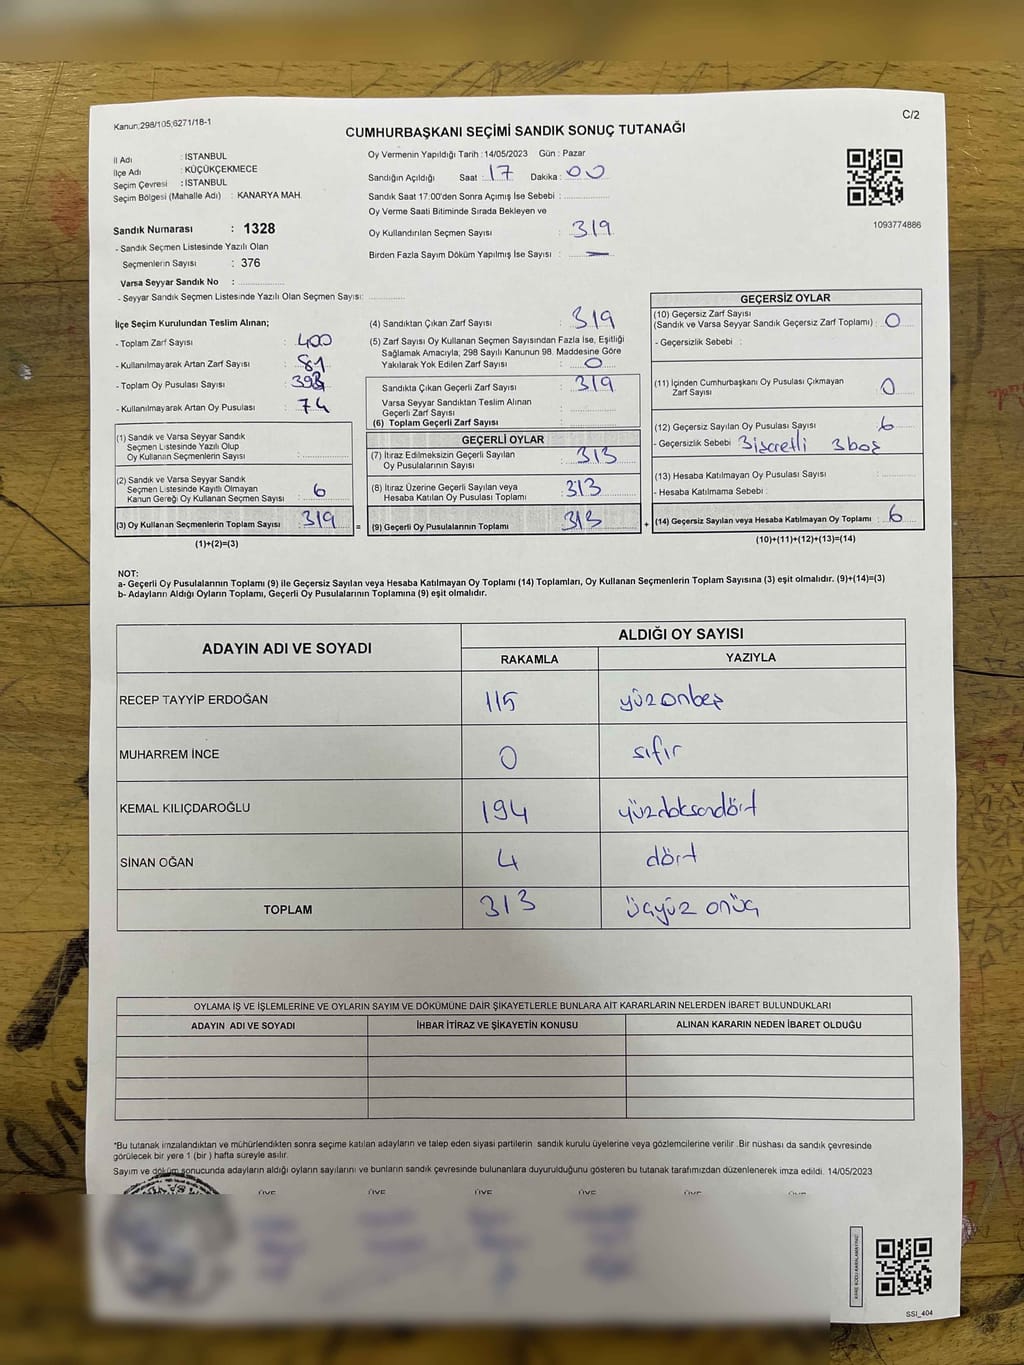 Kanun;298/105,6271/18-1
C/2
CUMHURBAŞKANI SEÇİMİ SANDIK SONUÇ TUTANAĞI
İl Adı : İSTANBUL
İlçe Adı : KÜÇÜKÇEKMECE
Seçim Çevresi : İSTANBUL
Seçim Bölgesi (Mahalle Adı) : KANARYA MAH.
Sandık Numarası : 1328
- Sandık Seçmen Listesinde Yazılı Olan
Seçmenlerin Sayısı : 376
Varsa Seyyar Sandık No :
- Seyyar Sandık Seçmen Listesinde Yazılı Olan Seçmen Sayısı:
Oy Vermenin Yapıldığı Tarih : 14/05/2023 Gün : Pazar
Sandığın Açıldığı Saat : 17 Dakika : 00
Sandık Saat 17:00'den Sonra Açımış İse Sebebi :
Oy Verme Saati Bitiminde Sırada Bekleyen ve
Oy Kullandırılan Seçmen Sayısı : 319
Birden Fazla Sayım Döküm Yapılmış İse Sayısı : —
1093774886
İlçe Seçim Kurulundan Teslim Alınan;
- Toplam Zarf Sayısı : 400
- Kullanılmayarak Artan Zarf Sayısı : 81
- Toplam Oy Pusulası Sayısı :
- Kullanılmayarak Artan Oy Pusulası : 74
(1) Sandık ve Varsa Seyyar Sandık
Seçmen Listesinde Yazılı Olup
Oy Kullanan Seçmenlerin Sayısı :
(2) Sandık ve Varsa Seyyar Sandık
Seçmen Listesinde Kayıtlı Olmayan
Kanun Gereği Oy Kullanan Seçmen Sayısı : 6
(3) Oy Kullanan Seçmenlerin Toplam Sayısı : 319 =
(1)+(2)=(3)
(4) Sandıktan Çıkan Zarf Sayısı : 319
(5) Zarf Sayısı Oy Kullanan Seçmen Sayısından Fazla İse, Eşitliği
Sağlamak Amacıyla, 298 Sayılı Kanunun 98. Maddesine Göre
Yakılarak Yok Edilen Zarf Sayısı : 0
Sandıkta Çıkan Geçerli Zarf Sayısı : 319
Varsa Seyyar Sandıktan Teslim Alınan
Geçerli Zarf Sayısı :
(6) Toplam Geçerli Zarf Sayısı :
GEÇERLİ OYLAR
(7) İtiraz Edilmeksizin Geçerli Sayılan
Oy Pusulalarının Sayısı : 313
(8) İtiraz Üzerine Geçerli Sayılan veya
Hesaba Katılan Oy Pusulası Toplamı : 313
(9) Geçerli Oy Pusulalarının Toplamı : 313 +
GEÇERSİZ OYLAR
(10) Geçersiz Zarf Sayısı
(Sandık ve Varsa Seyyar Sandık Geçersiz Zarf Toplamı) : 0
- Geçersizlik Sebebi :
(11) İçinden Cumhurbaşkanı Oy Pusulası Çıkmayan
Zarf Sayısı : 0
(12) Geçersiz Sayılan Oy Pusulası Sayısı : 6
- Geçersizlik Sebebi 3 işaretli 3 boş
(13) Hesaba Katılmayan Oy Pusulası Sayısı :
- Hesaba Katılmama Sebebi :
(14) Geçersiz Sayılan veya Hesaba Katılmayan Oy Toplamı : 6
(10)+(11)+(12)+(13)=(14)
NOT:
a- Geçerli Oy Pusulalarının Toplamı (9) ile Geçersiz Sayılan veya Hesaba Katılmayan Oy Toplamı (14) Toplamları, Oy Kullanan Seçmenlerin Toplam Sayısına (3) eşit olmalıdır. (9)+(14)=(3)
b- Adayların Aldığı Oyların Toplamı, Geçerli Oy Pusulalarının Toplamına (9) eşit olmalıdır.
ADAYIN ADI VE SOYADI
ALDIĞI OY SAYISI
RAKAMLA YAZIYLA
RECEP TAYYİP ERDOĞAN 115 yüzonbeş
MUHARREM İNCE 0 sıfır
KEMAL KILIÇDAROĞLU 194 yüzdoksandört
SİNAN OĞAN 4 dört
TOPLAM 313 üçyüz onüç
OYLAMA İŞ VE İŞLEMLERİNE VE OYLARIN SAYIM VE DÖKÜMÜNE DAİR ŞİKAYETLERLE BUNLARA AİT KARARLARIN NELERDEN İBARET BULUNDUKLARI
ADAYIN ADI VE SOYADI İHBAR İTİRAZ VE ŞİKAYETİN KONUSU ALINAN KARARIN NEDEN İBARET OLDUĞU
*Bu tutanak imzalandıktan ve mühürlendikten sonra seçime katılan adayların ve talep eden siyasi partilerin sandık kurulu üyelerine veya gözlemcilerine verilir .Bir nüshası da sandık çevresinde
görülecek bir yere 1 (bir ) hafta süreyle asılır.
Sayım ve döküm sonucunda adayların aldığı oyların sayılarını ve bunların sandık çevresinde bulunanlara duyurulduğunu gösteren bu tutanak tarafımızdan düzenlenerek imza edildi. 14/05/2023
ÜYE ÜYE ÜYE ÜYE ÜYE ÜYE
SSİ_404